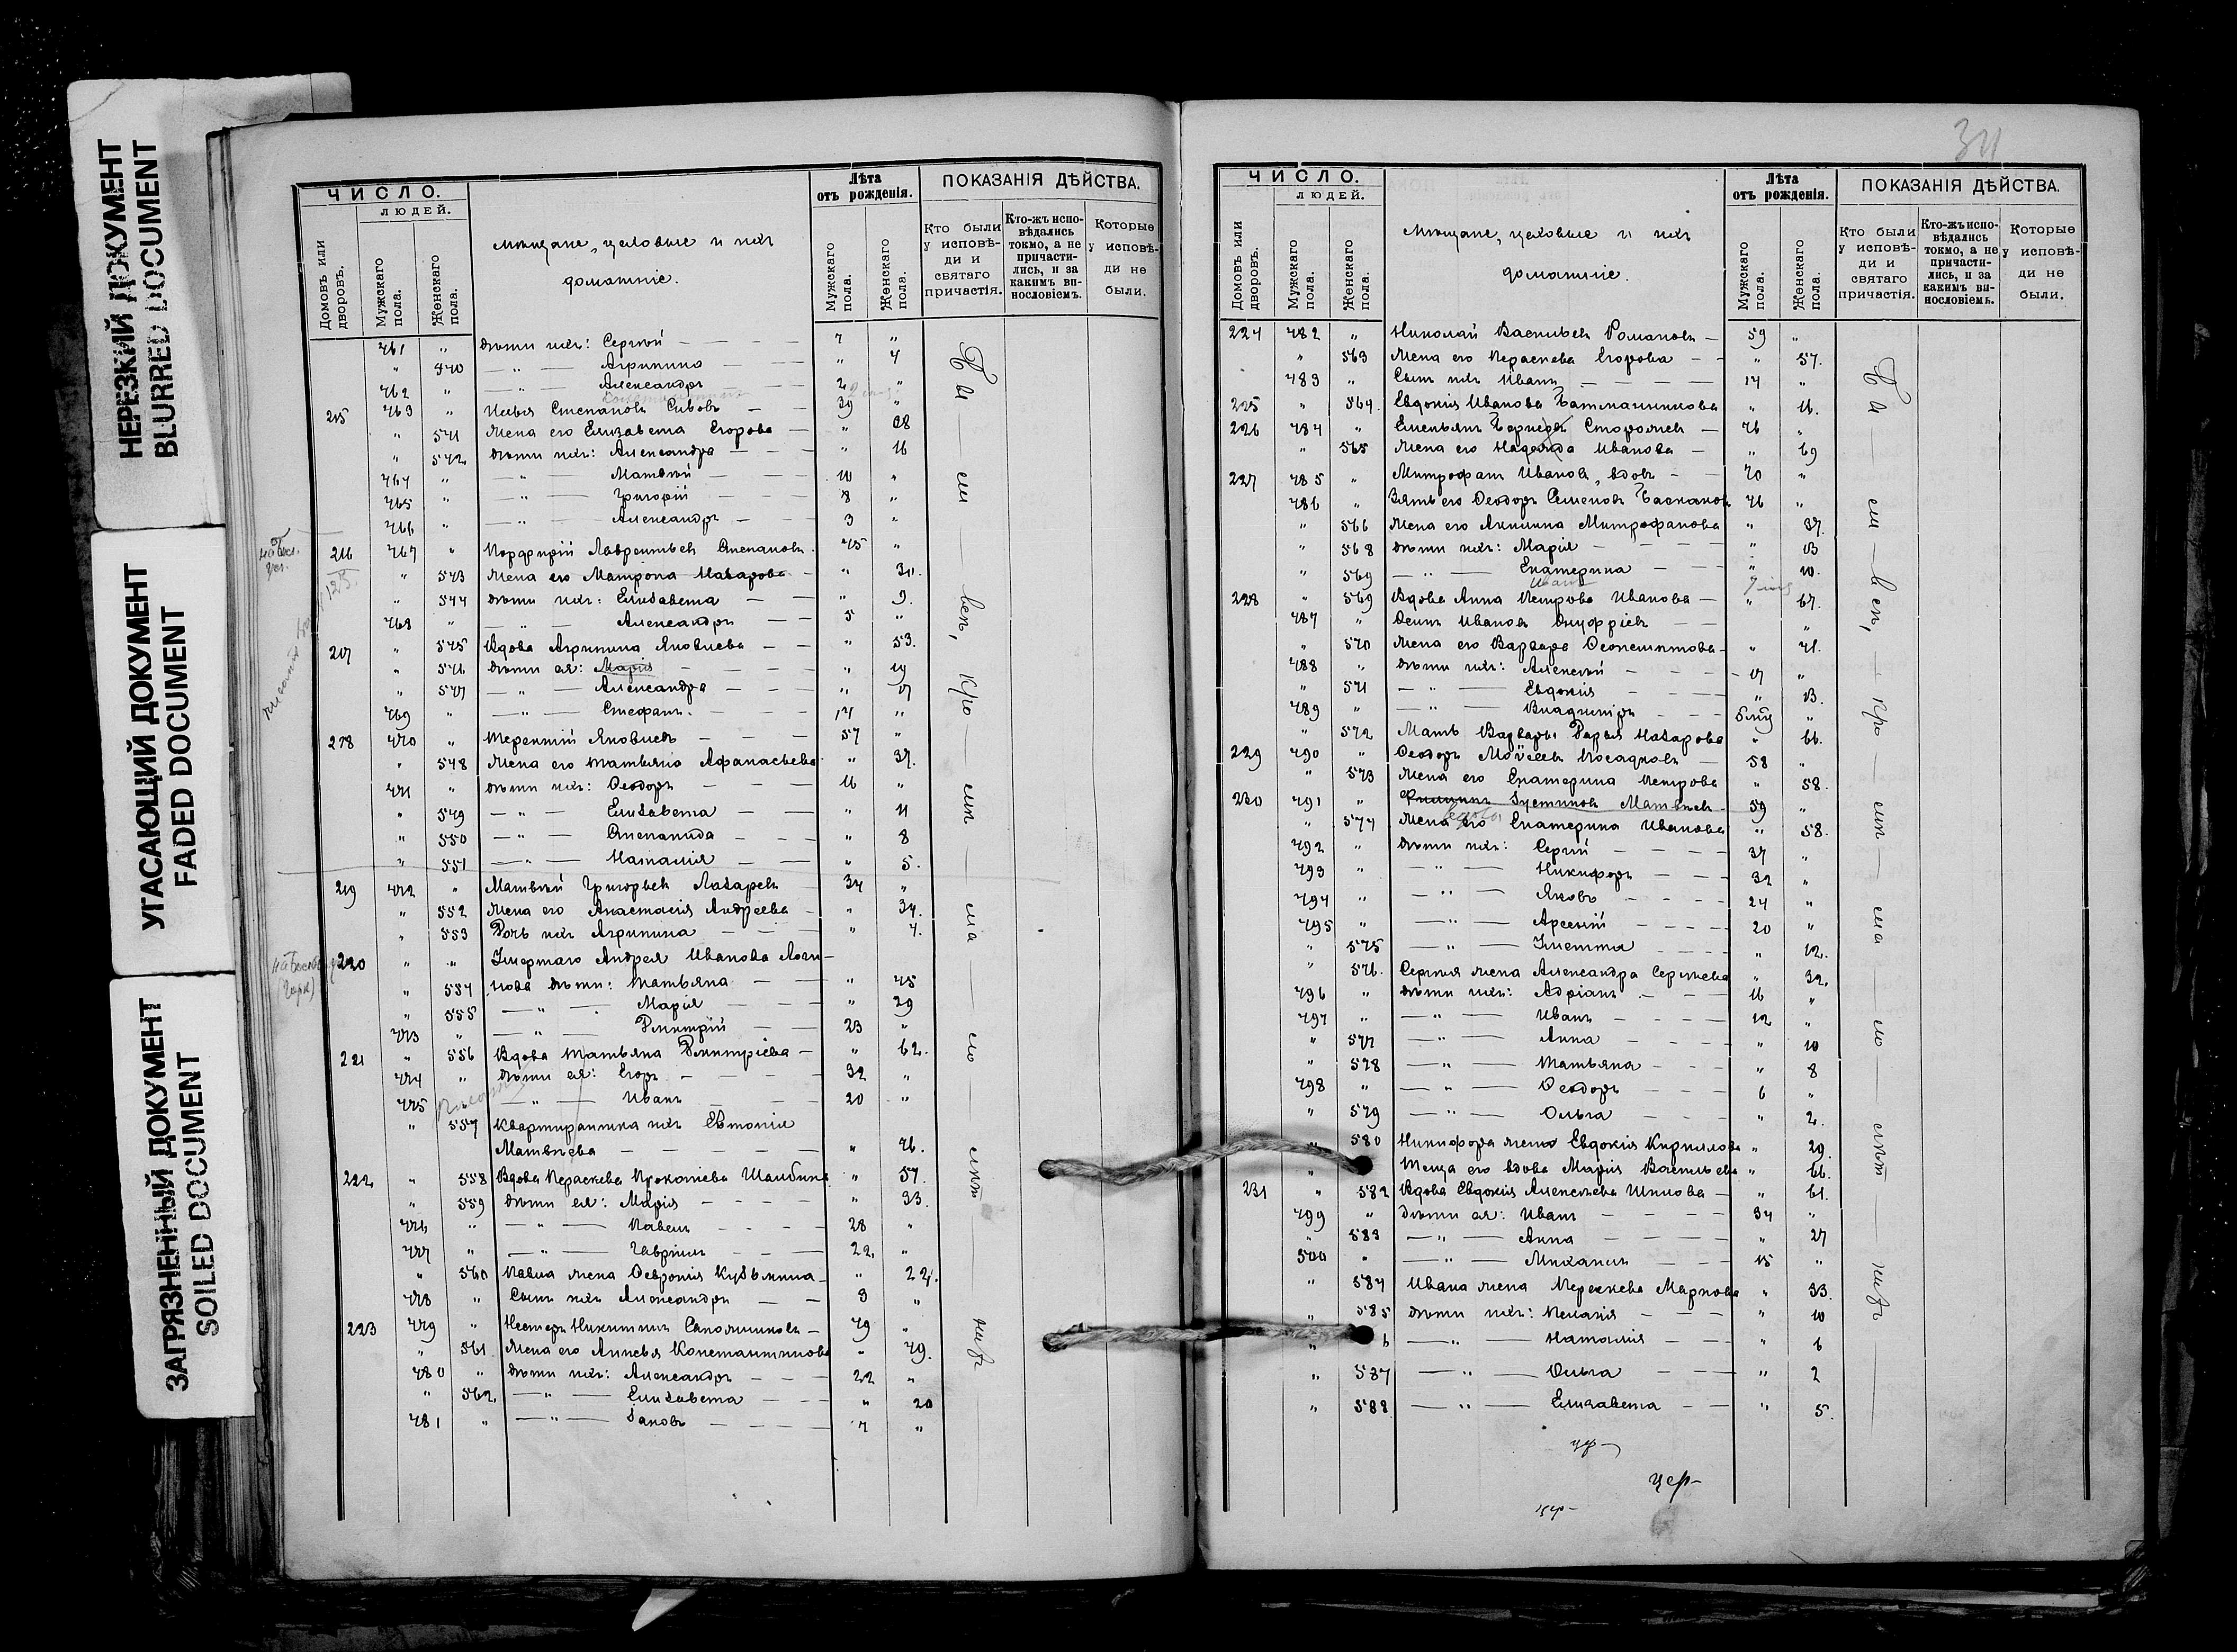 НЕРЕЗКИЙ ДОКУМЕНТ
BLURRED DOCUMENT
УГАСАЮЩИЙ ДОКУМЕНТ
FADED DOCUMENT
ЗАГРЯЗНЕННЫЙ ДОКУМЕНТ
SOILED DOCUMENT
ЧИСЛО.
ЛЮДЕЙ.
Домовъ или дворовъ.
Мужскаго пола.
Женскаго пола.
Мѣщане, цеховые и ихъ
домашніе.
Лѣта
отъ рожденія.
Мужскаго пола.
Женскаго пола.
ПОКАЗАНІЯ ДѢЙСТВА.
Кто были у исповѣди и святаго причастія.
Кто-жъ исповѣдались токмо, а не причастились, и за какимъ винословіемъ.
Которые у исповѣди не были.
461 " дѣти ихъ: Сергѣй 7 "
" 540 — " — Агрипина " 4
462 " — " — Александръ 2 "
215 463 " Илья Степановъ Сивовъ 39 "
" 541 Жена его Елизавета Егорова " 38
" 542 дѣти ихъ: Александра " 16
464 " — " — Матвѣй 10 "
465 " — " — Григорій 8 "
466 " — " — Александръ 3 "
216 467 " Порфирій Лаврентьевъ Степановъ 45 "
" 543 Жена его Матрона Назарова " 30.
" 544 дѣти ихъ: Елизавета " 9.
468 " — " — Александръ 5 "
217 " 545 Вдова Агрипина Яковлева " 53.
" 546 дѣти ея: Марія " 19
" 547 — " — Александра " 17
469 " — " — Стефанъ. 14 "
218 470 " Терентій Яковлевъ 57 "
" 548 Жена его Татьяна Афанасьева " 37.
471 " дѣти ихъ: Ѳеодоръ 16 "
" 549 — " — Елизавета " 11
" 550 — " — Степанида " 8
" 551 — " — Наталія " 5.
219 472 " Матвѣй Григорьевъ Лазаревъ 34 "
" 552 Жена его Анастасія Андреева " 34.
" 553 Дочь ихъ Агрипина " 4.
220 " " Умершаго Андрея Иванова Логи-
" 554 нова дѣти: Татьяна " 45
" 555 — " — Марія " 29
473 " — " — Дмитрій 23 "
221 " 556 Вдова Татьяна Дмитріева " 62.
474 " дѣти ея: Егоръ 32 "
475 " — " — Иванъ 20 "
" 557 Квартирантка ихъ Евгенія
Матвѣева " 46.
222 " 558 Вдова Параскева Прокопіева Шамбина " 57.
" 559 дѣти ея: Марія " 33.
476 " — " — Павелъ 28 "
477 " — " — Гавріилъ 22 "
" 560 Павла жена Ѳевронія Кузьмина " 24.
478 " Сынъ ихъ Александръ 3 "
223 479 " Несторъ Никитинъ Сапожниковъ 49 "
" 561 Жена его Анисья Константинова " 49.
480 " дѣти ихъ: Александръ 22 "
" 562 — " — Елизавета " 20
481 " — " — Іаковъ 7 "
34
ЧИСЛО.
ЛЮДЕЙ.
Домовъ или дворовъ.
Мужскаго пола.
Женскаго пола.
Мѣщане, цеховые и ихъ
домашніе.
Лѣта
отъ рожденія.
Мужскаго пола.
Женскаго пола.
ПОКАЗАНІЯ ДѢЙСТВА.
Кто были у исповѣди и святаго причастія.
Кто-жъ исповѣдались токмо, а не причастились, и за какимъ винословіемъ.
Которые у исповѣди не были.
224 482 " Николай Васильевъ Романовъ 59 "
" 563 Жена его Параскева Егорова " 57.
483 " Сынъ ихъ Иванъ 14 "
225 " 564. Евдокія Иванова " 16.
226 484 " Емельянъ Сторожевъ 76 "
" 565 Жена его Надежда Иванова " 69
227 485 " Митрофанъ Ивановъ, вдовъ 70 "
486 " Зять его Ѳеодоръ Семеновъ Баскаковъ 46 "
" 566 Жена его Акилина Митрофанова " 37.
" 568 дѣти ихъ: Марія " 13
" 569 — " — Екатерина " 10.
228 " 569 Вдова Анна Петрова Иванова " 67.
487 " Осипъ Ивановъ Онуфріевъ "
" 570 Жена его Варвара Ѳеоктистова " 41.
488 " дѣти ихъ: Алексѣй 17 "
" 571 — " — Евдокія " 13.
489 " — " — Владиміръ "
" 572 Мать Варвары Дарья Назарова " 66.
229 490 " Ѳеодоръ Моѵсеевъ Посадковъ 58 "
" 573 Жена его Екатерина Петрова " 58.
230 491 " Филиппъ Устиновъ Матвѣевъ 59 "
" 574 Жена его Екатерина Иванова " 58.
492 " дѣти ихъ: Сергѣй 37 "
493 " — " — Никифоръ 32 "
494 " — " — Яковъ 24 "
495 " — " — Арсеній 20 "
" 575 — " — " 12.
" 576. Сергѣя жена Александра Сергѣева " 32.
496 " дѣти ихъ: Адріанъ 16 "
497 " — " — Иванъ 12 "
" 577 — " — Анна " 10
" 578 — " — Татьяна " 8
498 " — " — Ѳеодоръ 6 "
" 579 — " — Ольга " 2.
" 580 Никифора жена Евдокія Кириллова " 29.
" Теща его вдова Марія Васильева " 66.
231 " 582 Вдова Евдокія Алексѣева Шилова " 61.
499 " дѣти ея: Иванъ 34 "
" 583 — " — Анна " 27
500 " — " — Михаилъ 15 "
" 584 Ивана жена Параскева Маркова " 33.
" 585 дѣти ихъ: Пелагія " 10
" 6 — " — Наталія " 6
" 587 — " — Ольга " 2
" 588 — " — Елизавета " 5.